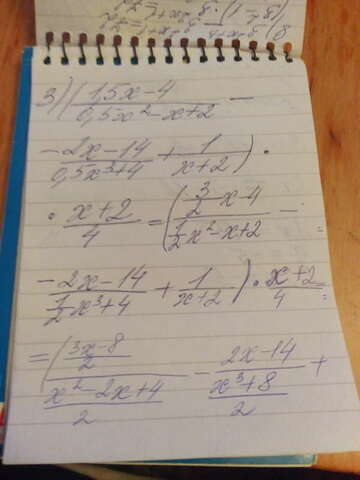 3) ( (1,5x-4)/(0,5x²-x+2) -
- (2x-14)/(0,5x³+4) + 1/(x+2) ) ·
· (x+2)/4 = ( (3/2 x-4)/(1/2 x²-x+2) -
- (2x-14)/(1/2 x³+4) + 1/(x+2) ) · (x+2)/4 =
= ( ((3x-8)/2)/((x²-2x+4)/2) - (2x-14)/((x³+8)/2) +